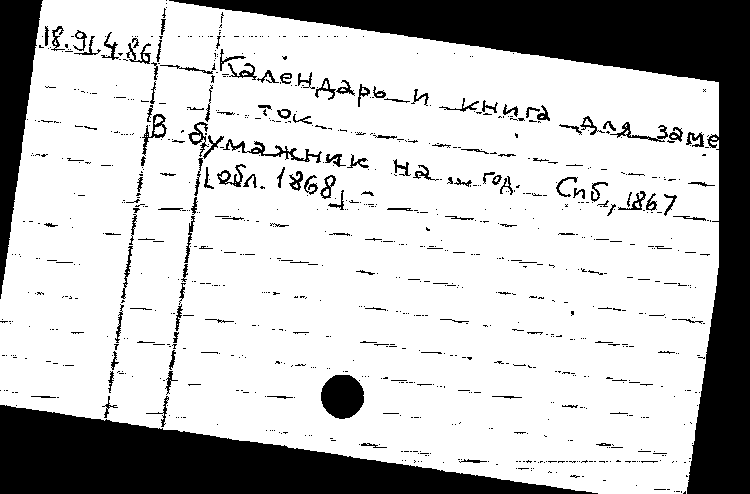 18.91.4.86
Календарь и книга для заме
ток
В бумажник на ... год. Спб., 1867
[обл. 1868] -